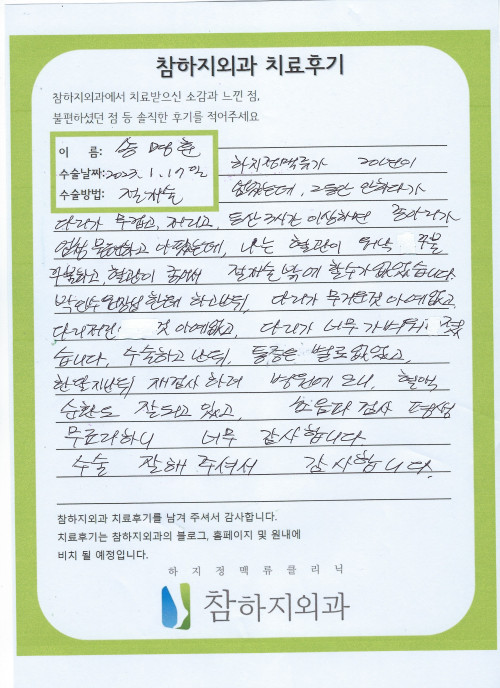 참하지외과 치료후기
참하지외과에서 치료받으신 소감과 느낀 점,
불편하셨던 점 등 솔직한 후기를 적어주세요
이 름: 송
수술날짜: 2023. 1. 17일
수술방법: 절제술
하지정맥류가 20년이
넘었는데, 그동안 안하다가
다리가 무겁고, 저리고, 등산 2시간 이상하면 종아리가
엄청 하고 아팠는데, 나는 혈관이 워낙 꾸불
꾸불하고, 혈관이 굵어서 절제술 밖에 할수가 없었습니다.
박인수 원장님 한테 하고난뒤, 다리가 무거운것 아예없고,
다리저린 것 아예없고, 다리가 너무 가벼워 졌
습니다, 수술하고 난뒤, 통증은 별로 없었고,
한달지난뒤 재검사 하러 병원에 오니, 혈액
순환도 잘되고 있고, 초음파 검사 평생
무료라하니 너무 감사합니다
수술 잘해 주셔서 감사합니다.
참하지외과 치료후기를 남겨 주셔서 감사합니다.
치료후기는 참하지외과의 블로그, 홈페이지 및 원내에
비치 될 예정입니다.
하지정맥류클리닉
참하지외과